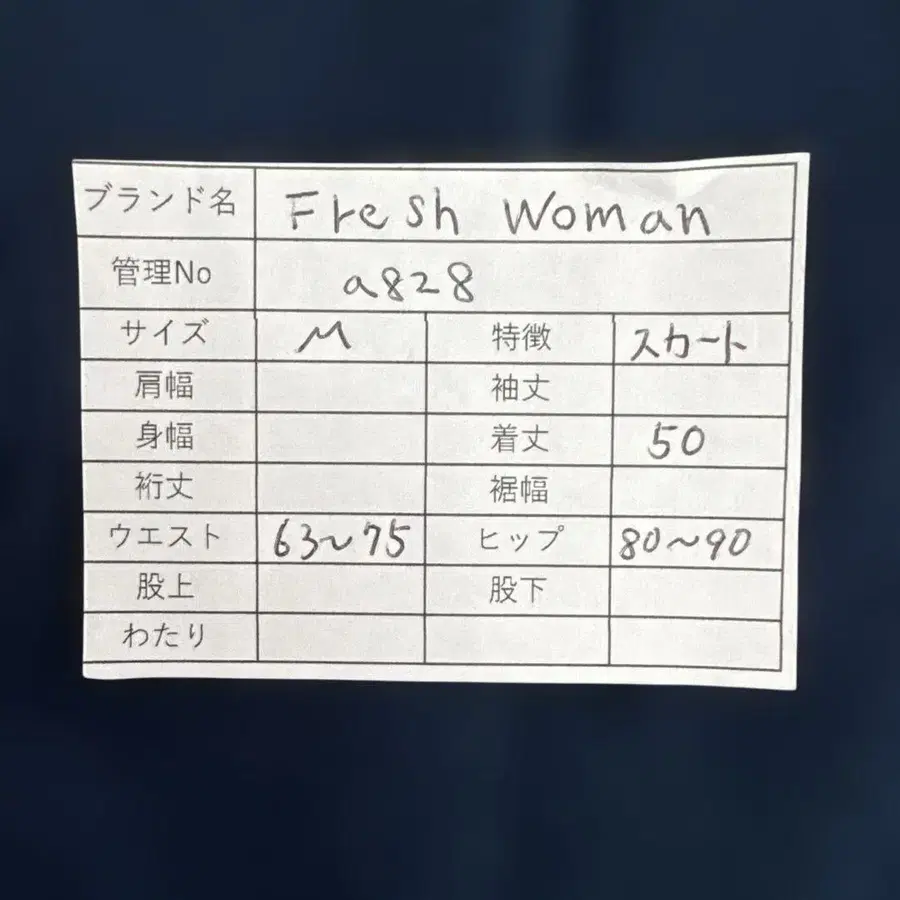 ブランド名 Fresh Woman
管理No a828
サイズ M 特徴 スカート
肩幅 袖丈
身幅 着丈 50
裄丈 裾幅
ウエスト 63～75 ヒップ 80～90
股上 股下
わたり